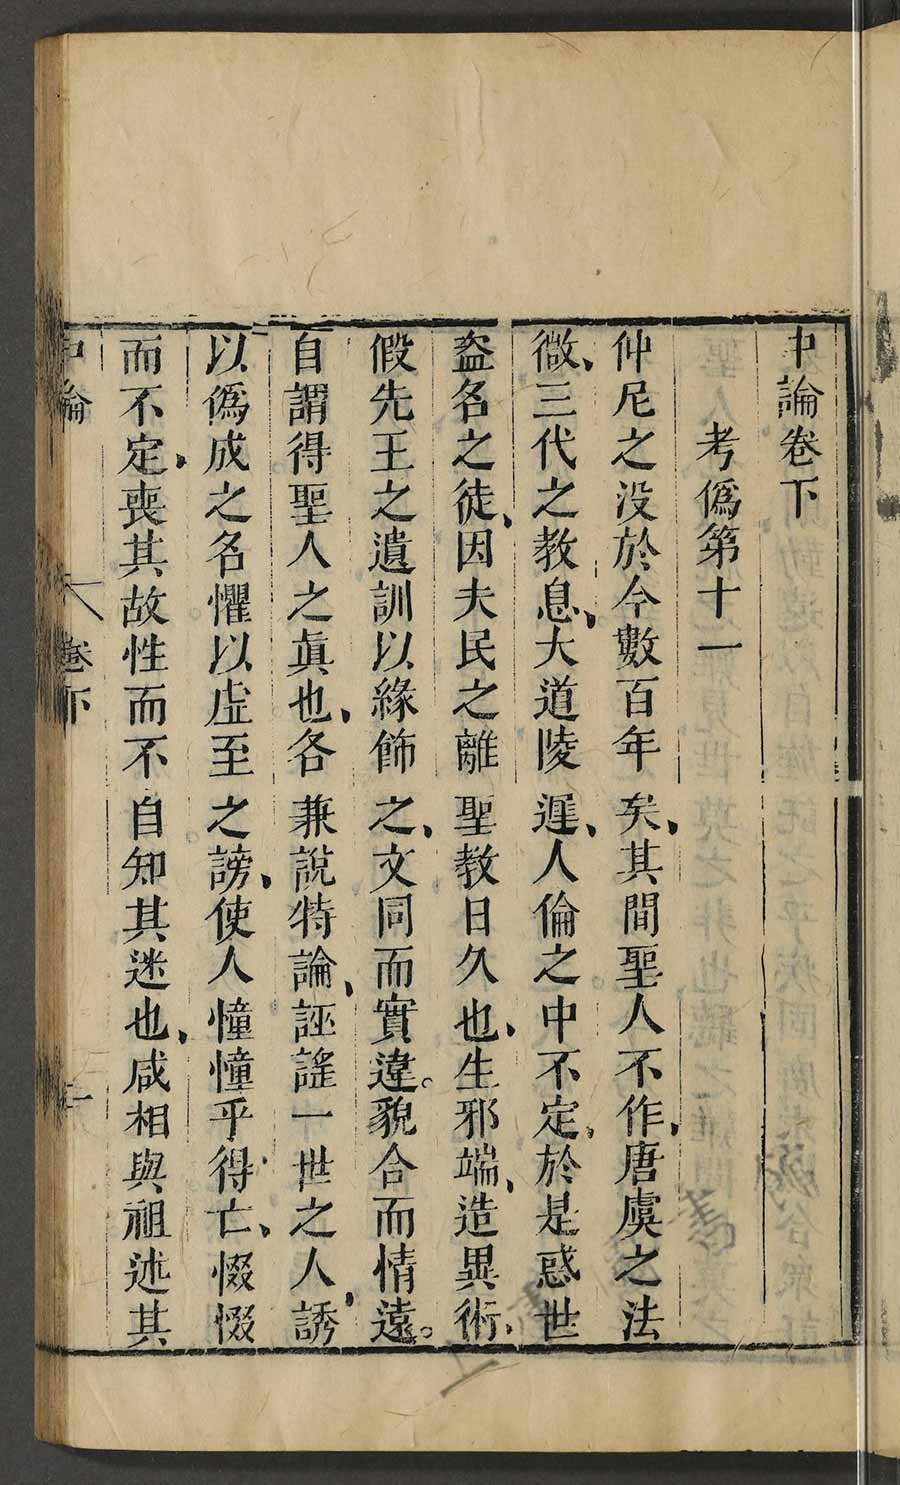 中論卷下
考僞第十一
仲尼之没於今數百年矣、其間聖人不作、唐虞之法
微、三代之教息、大道陵遲、人倫之中不定、於是惑世
盗名之徒、因夫民之離聖教日久也、生邪端、造異術、
假先王之遺訓以緣飾之、文同而實違。貌合而情遠。
自謂得聖人之眞也、各兼說特論、誣謠一世之人、誘
以僞成之名懼以虛至之謗、使人憧憧乎得亡、惙惙
而不定、喪其故性而不自知其迷也、咸相與祖述其
中論 卷下 一